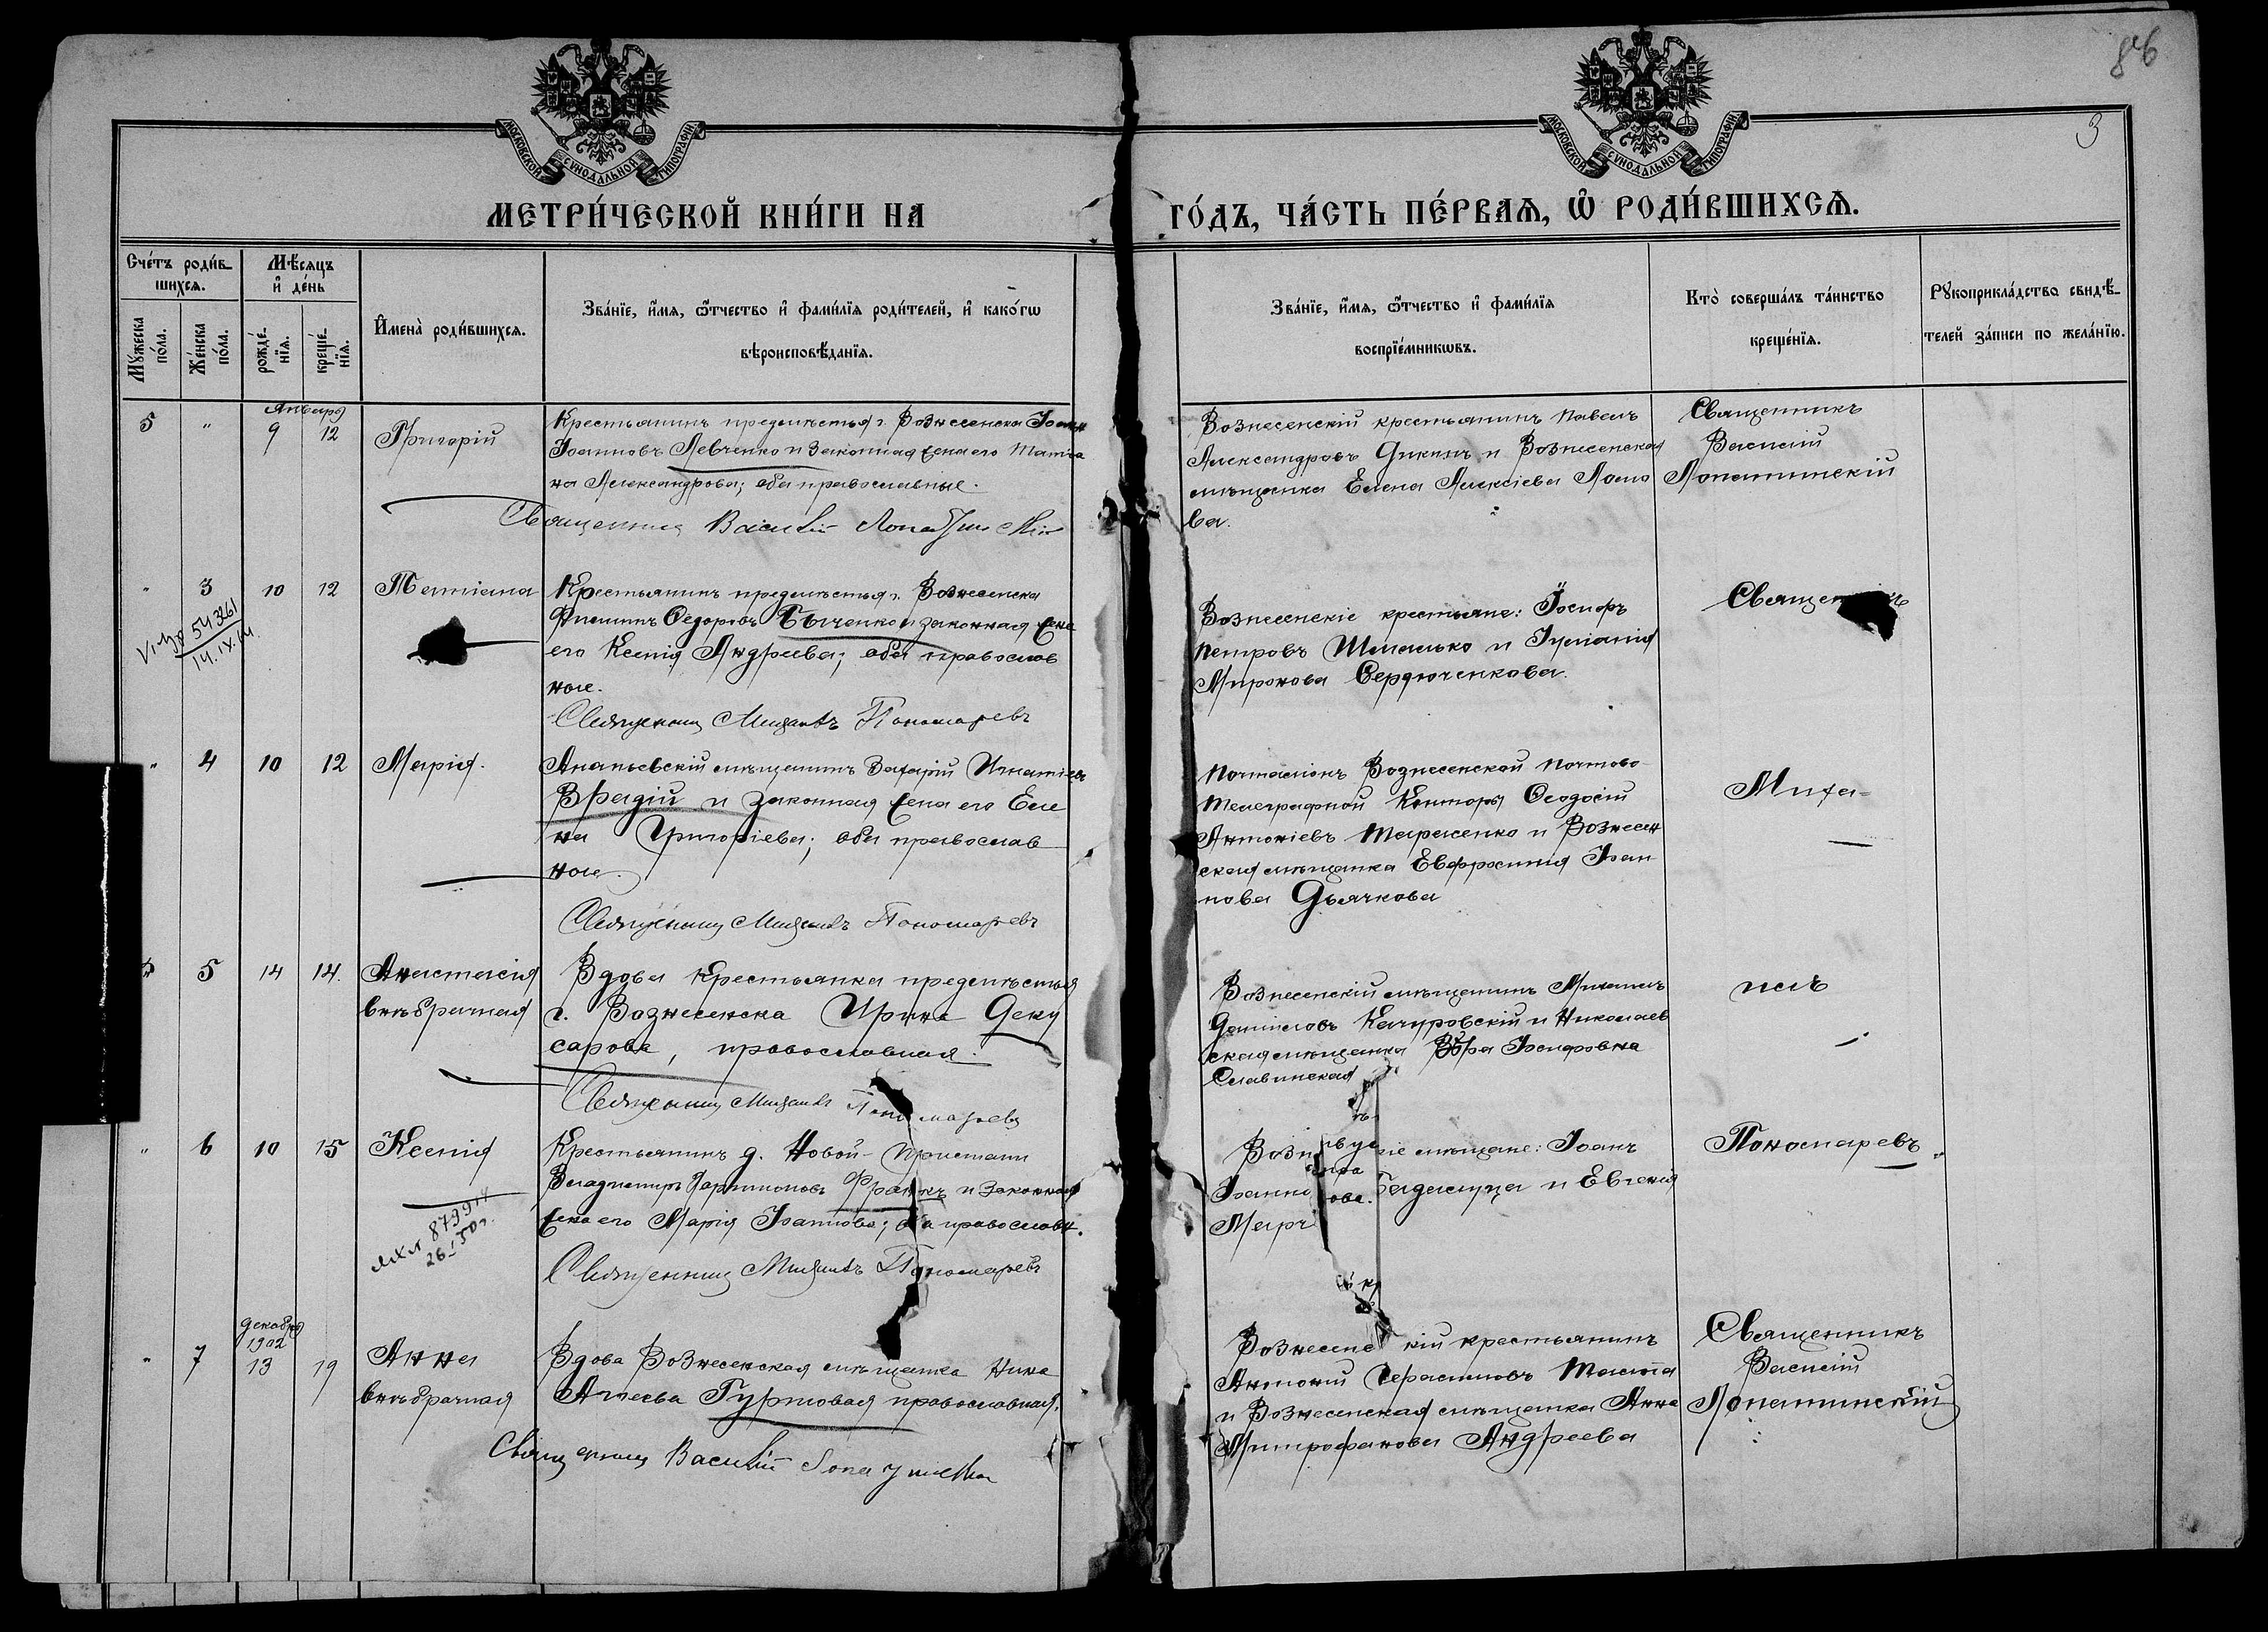 86
3
МОСКОВСКОЙ СѴНОДАЛЬНОЙ ТИПОГРАФІИ
МОСКОВСКОЙ СѴНОДАЛЬНОЙ ТИПОГРАФІИ
МЕТРИ́ЧЕСКОЙ КНИ́ГИ НА ГО́ДЪ, ЧА́СТЬ ПЕ́РВАѦ, Ѽ РОДИ́ВШИХСѦ.
Счётъ роди́в-
шихсѧ.
Мѣ́сѧцъ
и҆ де́нь
Мꙋ́жеска
по́ла.
Же́нска
по́ла.
рожде́-
нїѧ.
креще́-
нїѧ.
И҆мена̀ роди́вшихсѧ.
Зва́нїе, и҆́мѧ, ѻ҆́тчество и҆ фами́лїѧ роди́телей, и҆ како́гѡ
вѣроисповѣ́данїѧ.
Зва́нїе, и҆́мѧ, ѻ҆́тчество и҆ фами́лїѧ
воспрїе́мникѡвъ.
Кто̀ соверша́лъ та́инство
креще́нїѧ.
Рꙋкоприкла́дство свидѣ́-
телей за́писи по жела́нїю.
Января
5 " 9 12 Григорій
Крестьянинъ предмѣстья г. Вознесенска Іоаннъ
Іоанновъ Левченко и законная жена его Татіа
на Александрова; оба православные.
Священникъ Василій Лопатинскій
Вознесенскій крестьянинъ Павелъ
Александровъ Дикинъ и Вознесенская
мѣщанка Елена Алексіева Ломо
ва.
Священникъ
Василій
Лопатинскій
" 3 10 12 Татіана
543261
14.IX.
Крестьянинъ предмѣстья г. Вознесенска
Филиппъ Ѳедоровъ Быченко и законная жена
его Ксенія Андреева; оба православ
ные.
Священникъ Михаилъ Пономаревъ
Вознесенскіе крестьяне: Іосифъ
Петровъ Шпалько и Іуліанія
Миронова Сердюченкова.
Священникъ
" 4 10 12 Марія.
Ананьевскій мѣщанинъ Захарій Игнатіевъ
Врадій и законная жена его Еле
на Григоріева; оба православ
ные.
Священникъ Михаилъ Пономаревъ
Почталіонъ Вознесенской Почтово-
Телеграфной Конторы Ѳеодосій
Антоніевъ Тараненко и Вознесен
ская мѣщанка Евфросинія Іоан
нова Дьячкова
Миха-
" 5 14 14. Анастасія
внѣбрачная
Вдова крестьянка предмѣстья
г. Вознесенска Ирина Деку
сарова, православная.
Священникъ Михаилъ Пономаревъ
Вознесенскій мѣщанинъ Михаилъ
Даниловъ Качуровскій и Николаев
ская мѣщанка Вѣра Іосифовна
Славинская
илъ
" 6 10 15 Ксенія
8799
26 I 50 г.
Крестьянинъ д. Новой-Пристани
Владиміръ Харитоновъ Франкъ и законная
жена его Марія Іоаннова; оба православн.
Священникъ Михаилъ Пономаревъ
Возн іе мѣщане: Іоанъ
Іоанно Гадамуца и Евгенія
Мар
Пономаревъ
Декабря
1902
" 7 13 19 Анна
внѣбрачная
Вдова Вознесенская мѣщанка Нина
Агеева Гуртовая православная.
Священникъ Василій Лопатинскій
Вознесенскій крестьянинъ
Антоній Герасимовъ
и Вознесенская мѣщанка Анна
Митрофанова Андреева
Священникъ
Василій
Лопатинскій